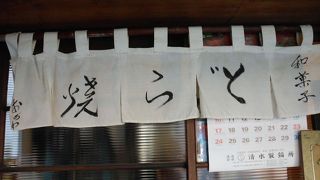 和菓子
どら焼
17 18 19 20 21 22 23
24 25 26 27 28 29 30
清水製餡所